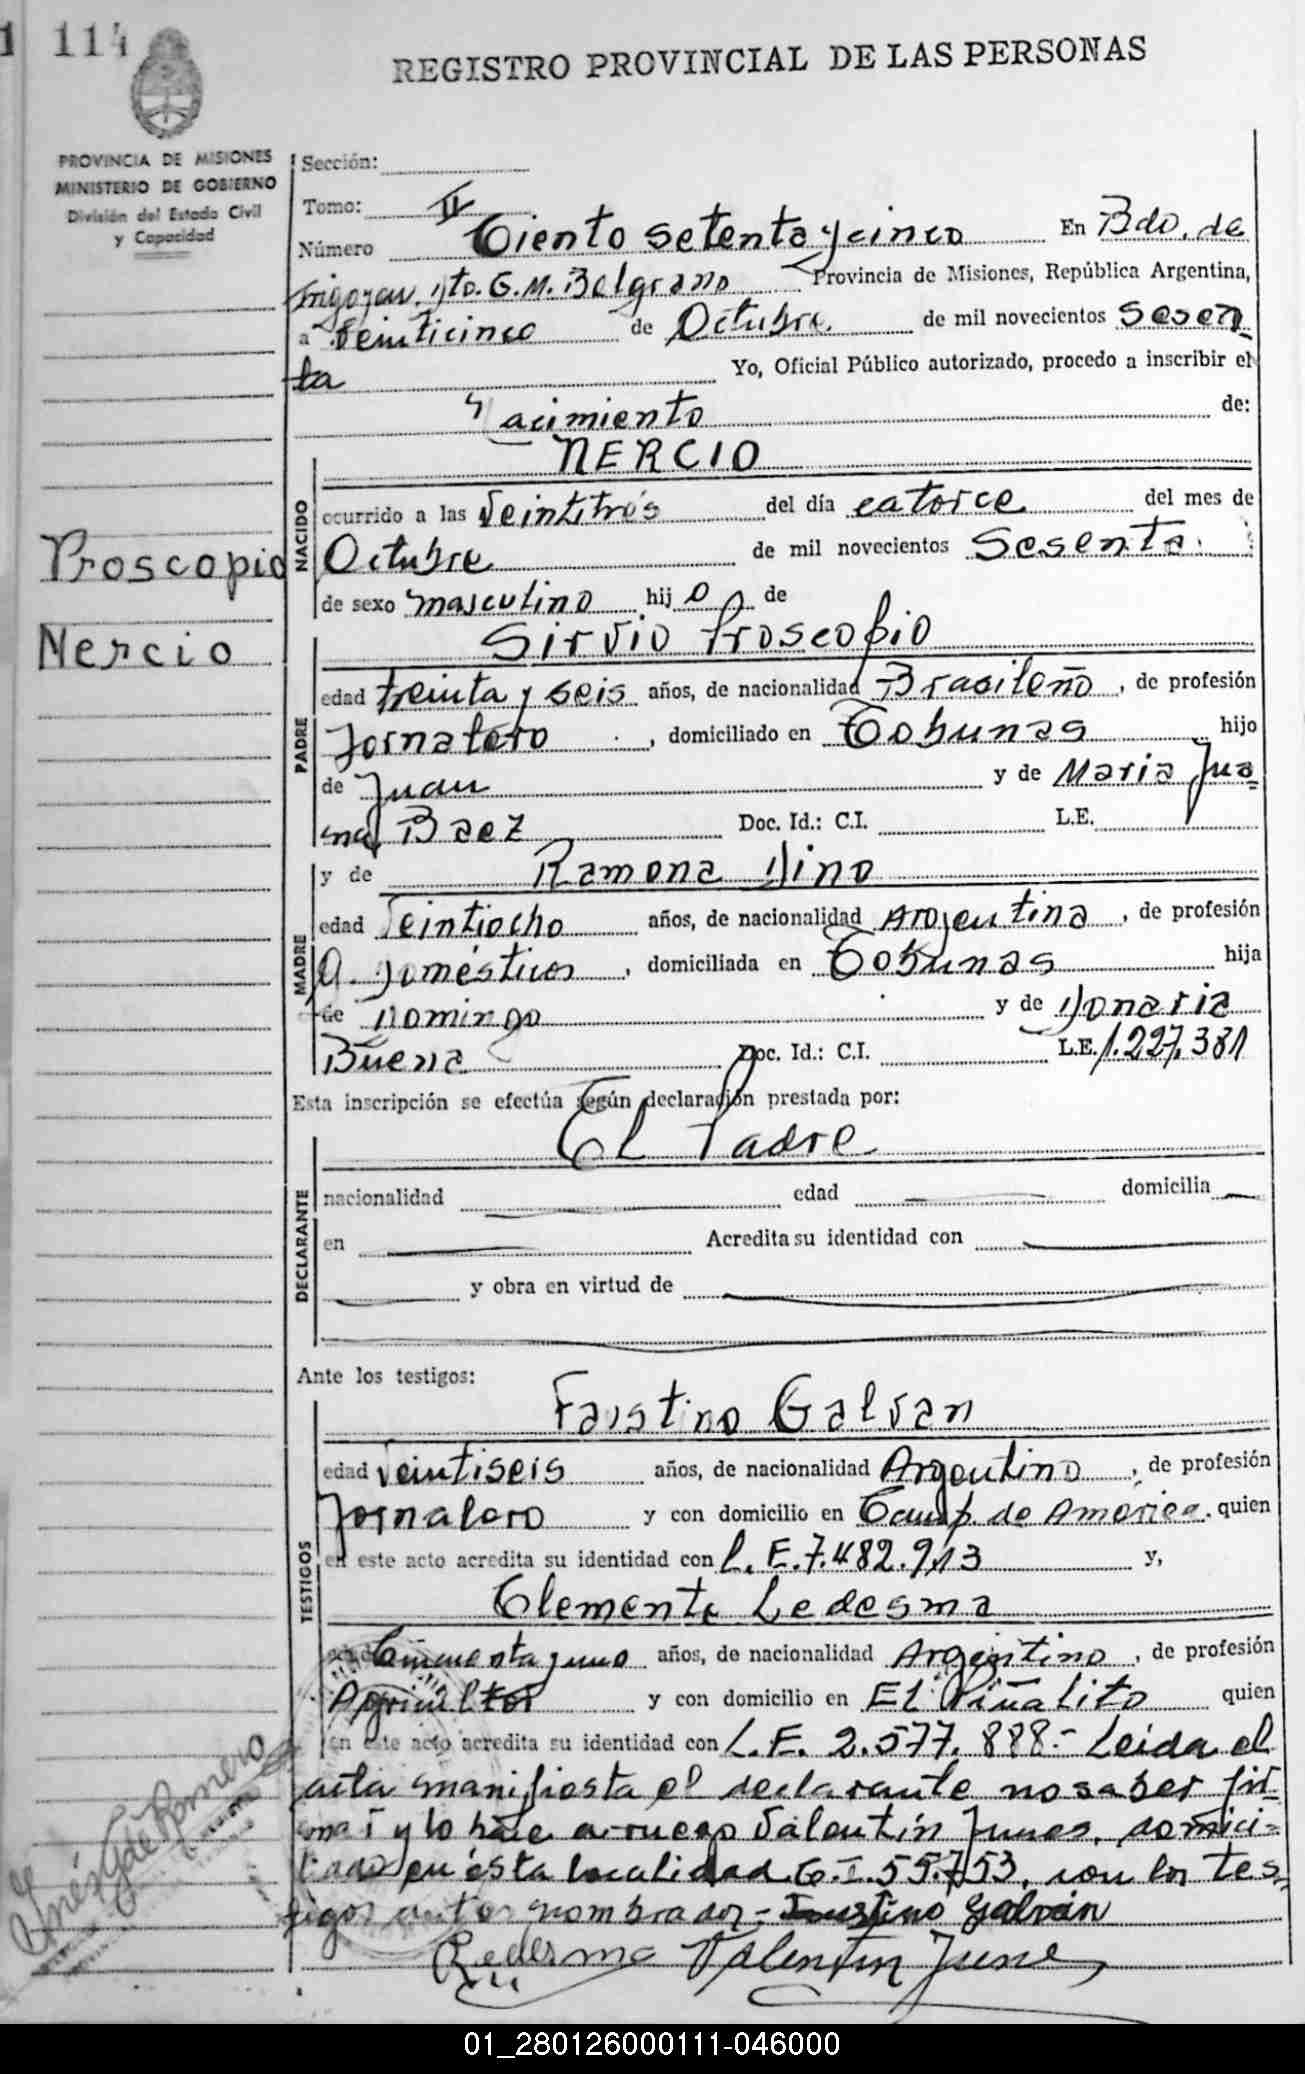 1 114
REGISTRO PROVINCIAL DE LAS PERSONAS
PROVINCIA DE MISIONES
MINISTERIO DE GOBIERNO
División del Estado Civil
y Capacidad
Proscopio
Nercio
Sección:
Tomo: II
Número Ciento setenta y cinco En Bdo. de
Irigoyen, Dto. G.M. Belgrano Provincia de Misiones, República Argentina,
a Veinticinco de Octubre de mil novecientos Sesen
ta Yo, Oficial Público autorizado, procedo a inscribir el
Nacimiento de:
NERCIO
NACIDO
ocurrido a las Veintitrós del día catorce del mes de
Octubre de mil novecientos Sesenta
de sexo masculino hijo de
Sirvio Proscopio
PADRE
edad treinta y seis años, de nacionalidad Brasileño, de profesión
Jornalero, domiciliado en Tobunas hijo
de Juan y de Maria Jua
na Baez Doc. Id.: C.I. L.E.
y de Ramona Dino
MADRE
edad Veintiocho años, de nacionalidad Argentina, de profesión
Q. Domésticos, domiciliada en Tobunas hija
de Domingo y de Donaria
Buena Doc. Id.: C.I. L.E. 1.227.381
Esta inscripción se efectúa según declaración prestada por:
El Padre
DECLARANTE
nacionalidad edad domicilia
en Acredita su identidad con
y obra en virtud de
Ante los testigos:
Faustino Galvan
TESTIGOS
edad Veintiseis años, de nacionalidad Argentino, de profesión
Jornalero y con domicilio en Camp. de America. quien
en este acto acredita su identidad con L.E. 7.482.913 y,
Clemente Ledesma
edad Cincuenta y uno años, de nacionalidad Argentino, de profesión
Agricultor y con domicilio en El Piñalito quien
en este acto acredita su identidad con L.E. 2.577.888.- Leida el
acta manifiesta el declarante no saber fir-
mar y lo hace a ruego Valentín Junes, domici-
liado en ésta localidad C.I. 55.753, con los tes-
tigos antes nombrados.- Faustino Galván
Ledesma Valentin June
Inés G. de Romero
01_280126000111-046000